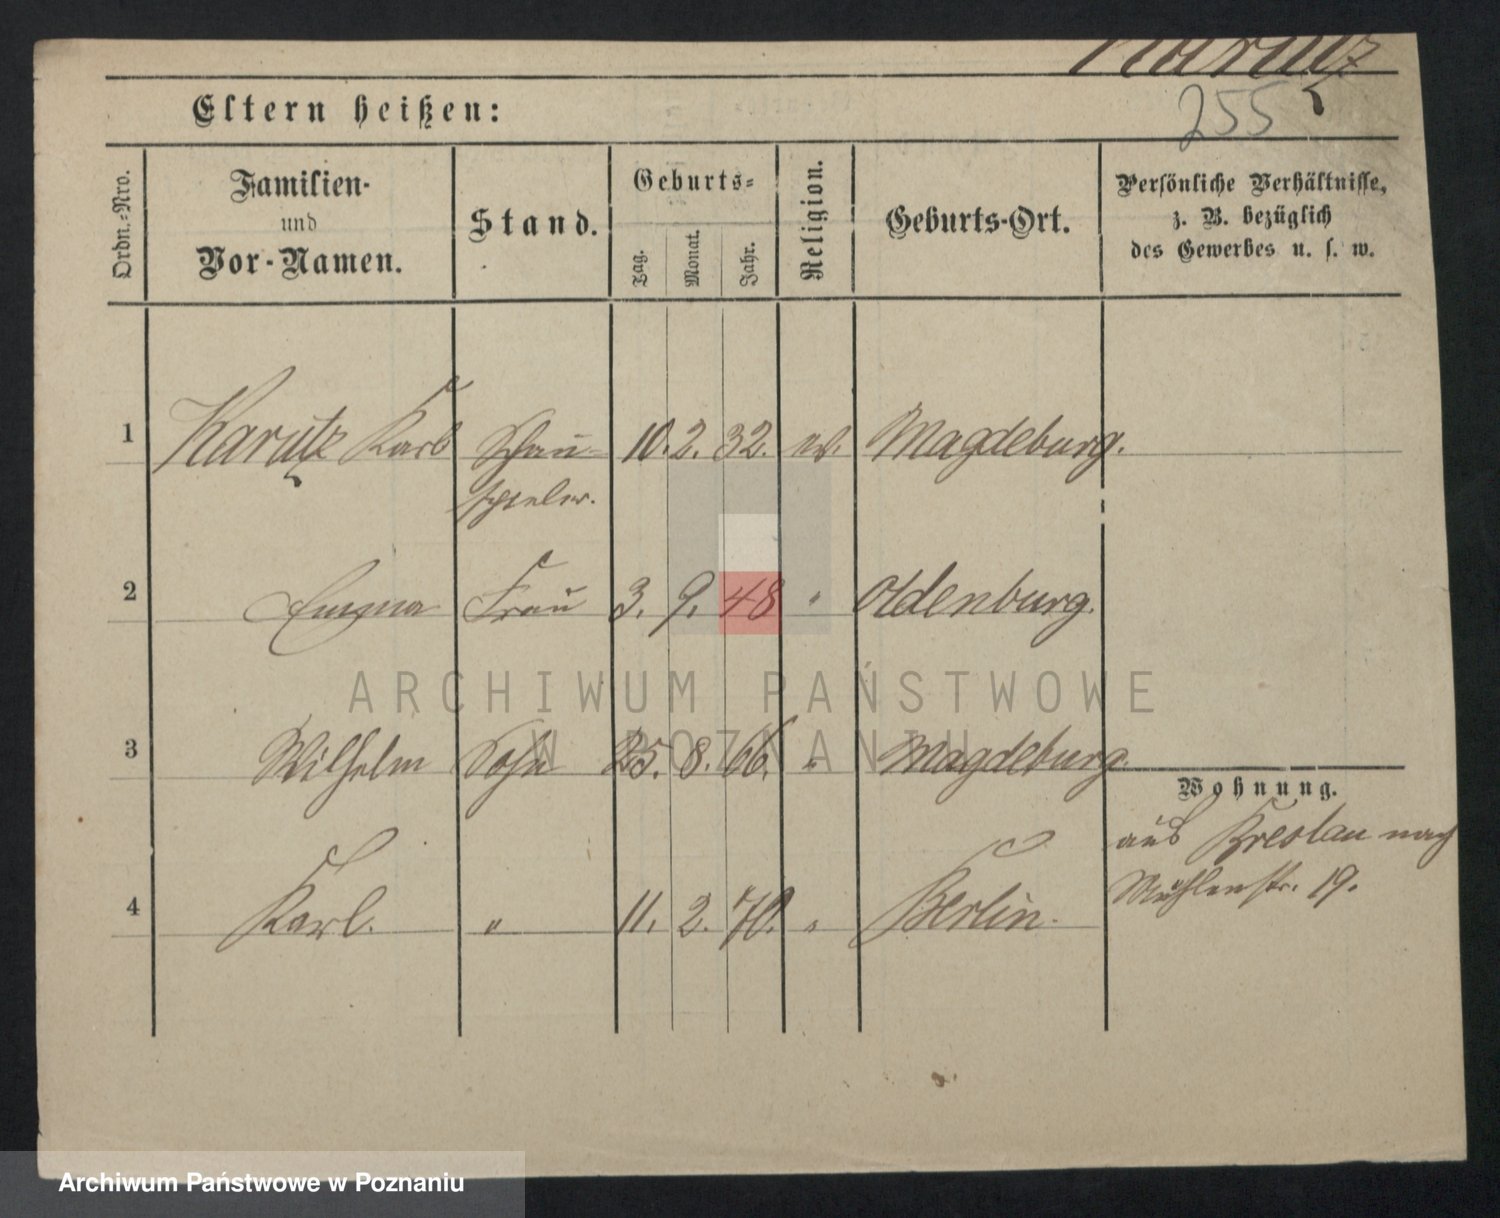 Karutz
255
Eltern heißen:
Ordn.-Nro.
Familien-
und
Vor-Namen.
Stand.
Geburts-
Tag.
Monat.
Jahr.
Religion.
Geburts-Ort.
Persönliche Verhältnisse,
z. B. bezüglich
des Gewerbes u. s. w.
1 Karutz Karl Schau- 10. 2. 32. ev. Magdeburg.
spieler.
2 Emma Frau 3. 9. 48 " Oldenburg.
3 Wilhelm Sohn 25. 8. 66. " Magdeburg.
Wohnung.
aus Breslau nach
Mühlenstr. 19.
4 Karl. " 11. 2. 70. " Berlin.
ARCHIWUM PAŃSTWOWE
W POZNANIU
Archiwum Państwowe w Poznaniu